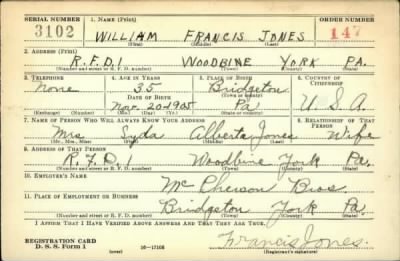 SERIAL NUMBER 1. NAME (Print) ORDER NUMBER
3102 WILLIAM FRANCIS JONES 147
(First) (Middle) (Last)
2. ADDRESS (Print)
R.F.D.1 WOODBINE YORK PA.
(Number and street or R. F. D. number) (Town) (County) (State)
3. TELEPHONE 4. AGE IN YEARS 5. PLACE OF BIRTH 6. COUNTRY OF CITIZENSHIP
None 35 Bridgeton
(Town or county)
DATE OF BIRTH
Nov. 20-1905 Pa U.S.A.
(Exchange) (Number) (Mo.) (Day) (Yr.) (State or country)
7. NAME OF PERSON WHO WILL ALWAYS KNOW YOUR ADDRESS 8. RELATIONSHIP OF THAT PERSON
Mrs Lyda Alberta Jones Wife
(Mr., Mrs., Miss) (First) (Middle) (Last)
9. ADDRESS OF THAT PERSON
R.F.D. 1 Woodbine York Pa.
(Number and street or R. F. D. number) (Town) (County) (State)
10. EMPLOYER'S NAME
McPherson Bros.
11. PLACE OF EMPLOYMENT OR BUSINESS
Bridgeton York Pa.
(Number and street or R. F. D. number) (Town) (County) (State)
I AFFIRM THAT I HAVE VERIFIED ABOVE ANSWERS AND THAT THEY ARE TRUE.
REGISTRATION CARD
D. S. S. Form 1 (over) 16-17105
Francis Jones.
(Registrant's signature)